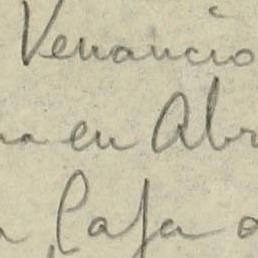 Venancio
en Abr
Casa